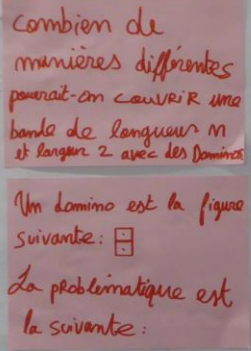 combien de
manières différentes
pourrait-on couvrir une
bande de longueur n
et largeur 2 avec des Dominos
Un domino est la figure
suivante:
La problématique est
la suivante: